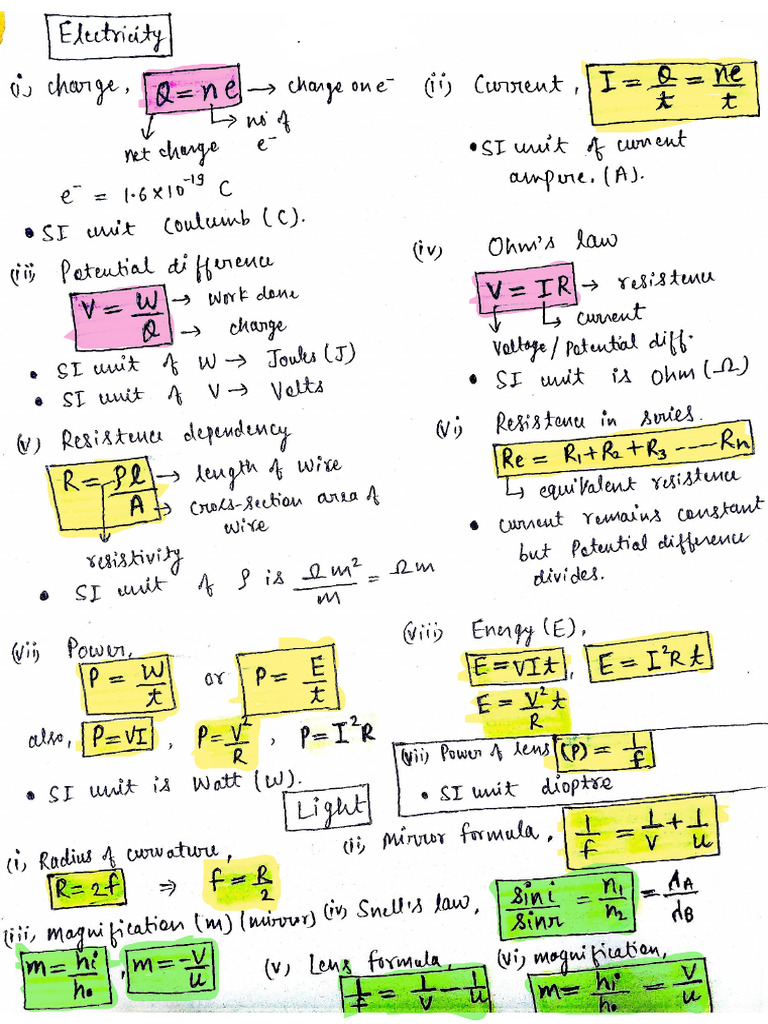 Electricity
(i) charge, Q = ne → charge on e⁻
→ no of e⁻
net charge
e⁻ = 1.6×10⁻¹⁹ C
• SI unit Coulumb (C).
(ii) Current, I = Q/t = ne/t
• SI unit of current
ampere. (A).
(iii) Potential difference
V = W/Q → Work done
→ charge
• SI unit of W → Jouls (J)
• SI unit of V → Volts
(iv) Ohm's law
V = IR → resistence
→ current
Voltage / Potential diff.
• SI unit is Ohm (Ω)
(v) Resistence dependency
R = ρl/A → length of wire
→ cross-section area of
wire
resistivity
• SI unit of ρ is Ωm²/m = Ωm
(vi) Resistence in series.
Re = R₁+R₂+R₃ ----- Rn
→ equivalent resistence
• current remains constant
but Potential difference
divides.
(vii) Power,
P = W/t or P = E/t
also, P=VI, P=V²/R, P=I²R
• SI unit is Watt (W).
(viii) Energy (E),
E=VIt, E = I²Rt
E = V²/R t
(vii) Power of lens (P) = 1/f
• SI unit dioptre
Light
(i) Radius of curvature,
R=2f ⇒ f=R/2
(ii) Mirror formula, 1/f = 1/v + 1/u
(iii) magnification (m) (mirror)
m = hi/ho, m = -v/u
(iv) Snell's law, sini/sinr = n₁/n₂ = λA/λB
(v) Lens formula,
1/f = 1/v - 1/u
(vi) magnification,
m = hi/ho = v/u